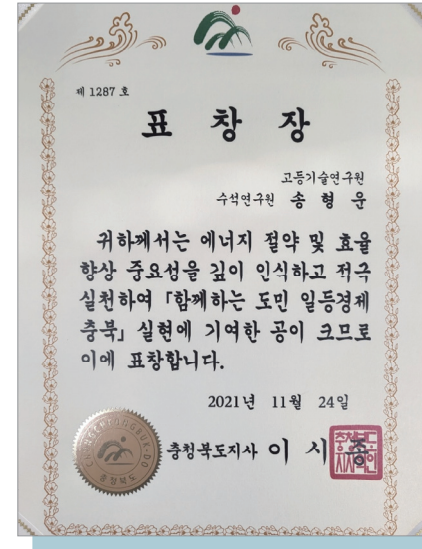 제 1287 호
표 창 장
고등기술연구원
수석연구원 송 형 운
귀하께서는 에너지 절약 및 효율
향상 중요성을 깊이 인식하고 적극
실천하여 「함께하는 도민 일등경제
충북」 실현에 기여한 공이 크므로
이에 표창합니다.
2021년 11월 24일
충청북도지사 이 시 종
CHUNGCHEONGBUK-DO
충청북도